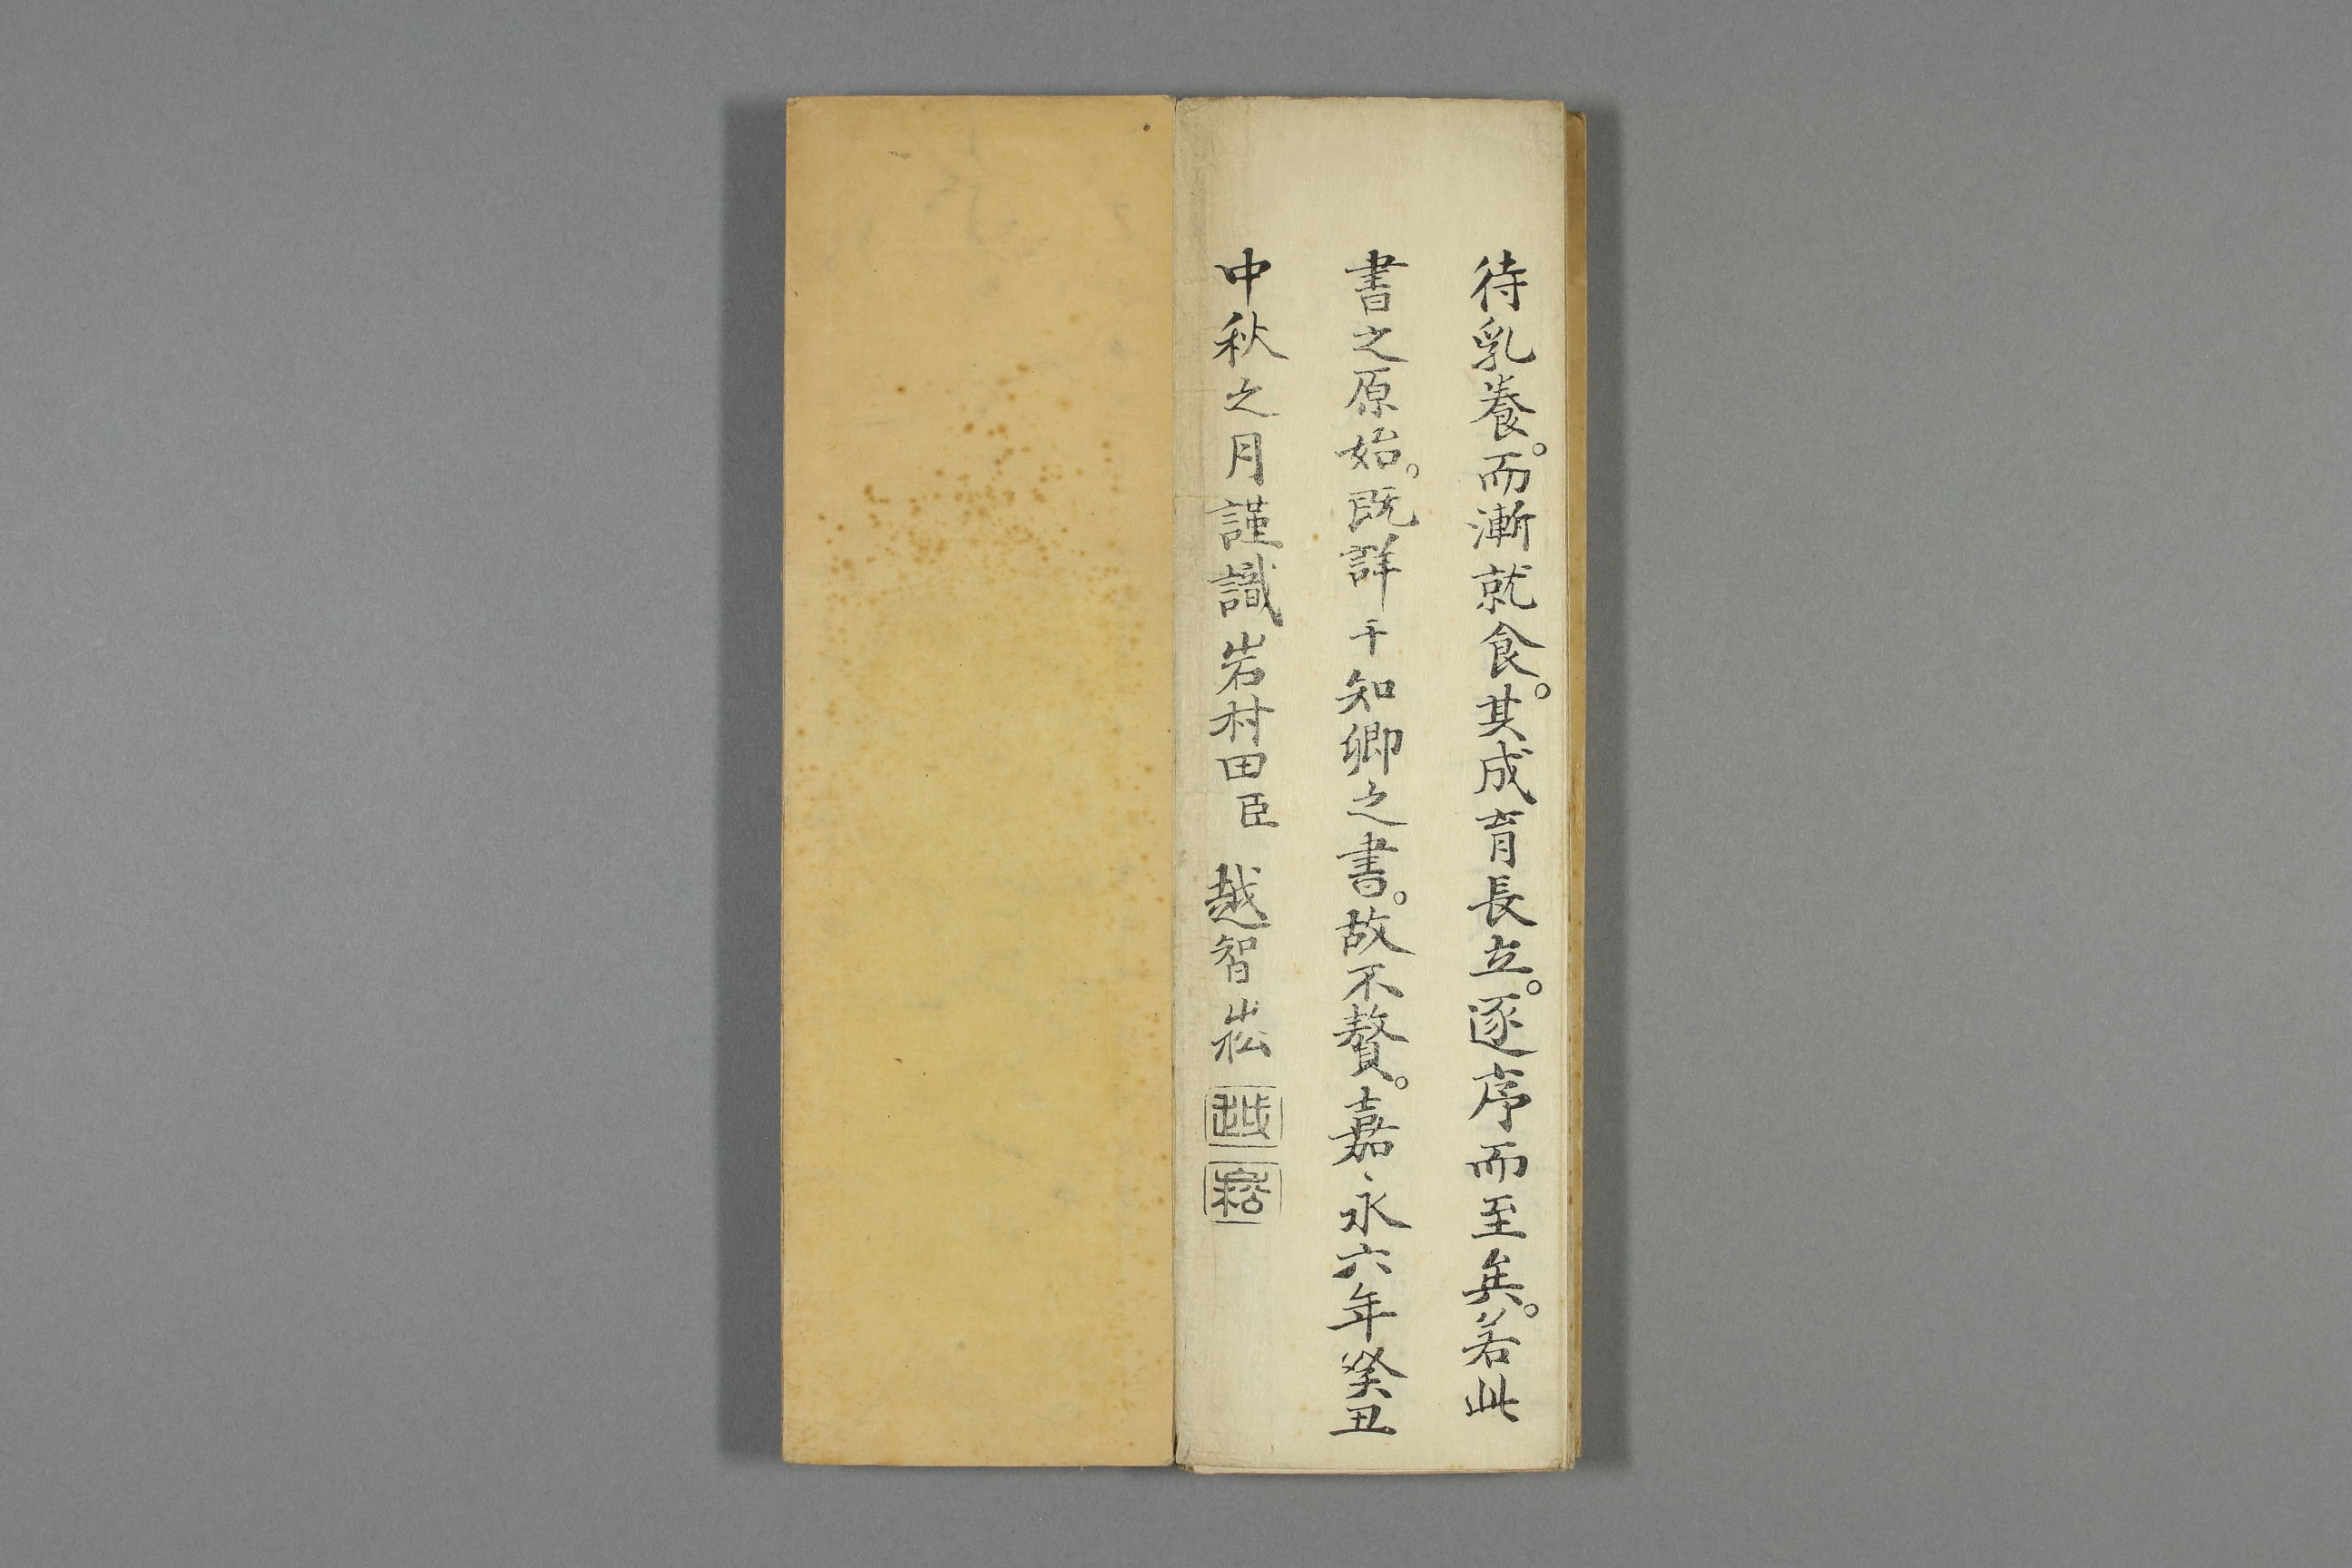 待乳養。而漸就食。其成育長立。逐序而至矣。若此
書之原始。既詳于知卿之書。故不贅。嘉永六年癸丑
中秋之月謹識岩村田臣 越智崧